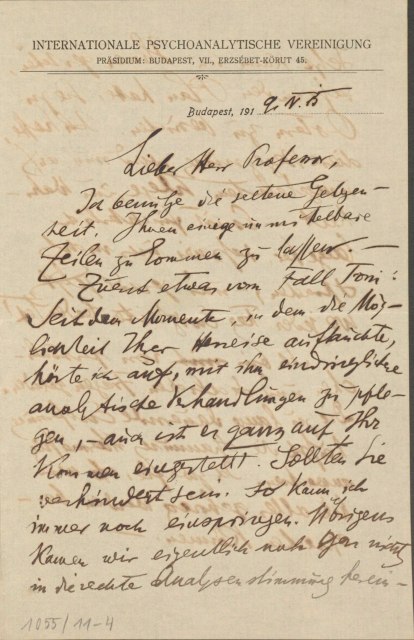 INTERNATIONALE PSYCHOANALYTISCHE VEREINIGUNG
PRÄSIDIUM: BUDAPEST, VII., ERZSÉBET-KÖRUT 45.
Budapest, 191
Lieber Herr Professor,
Ich benütze die seltene Gelegen-
heit, Ihnen einige unmittelbare
Zeilen zukommen zu lassen. —
Zuerst etwas vom Fall Toni:
Seit dem Momente, in dem die Mög-
lichkeit Ihrer Herreise auftauchte,
hörte ich auf, mit ihm eindringliche
analytische Verhandlungen zu pfle-
gen, – auch ist er ganz auf Ihr
Kommen eingestellt. Sollten Sie
verhindert sein, so kann ich
immer noch einspringen. Übrigens
kamen wir eigentlich noch gar nicht
in die rechte Analysenstimmung herein-
1055/11-4